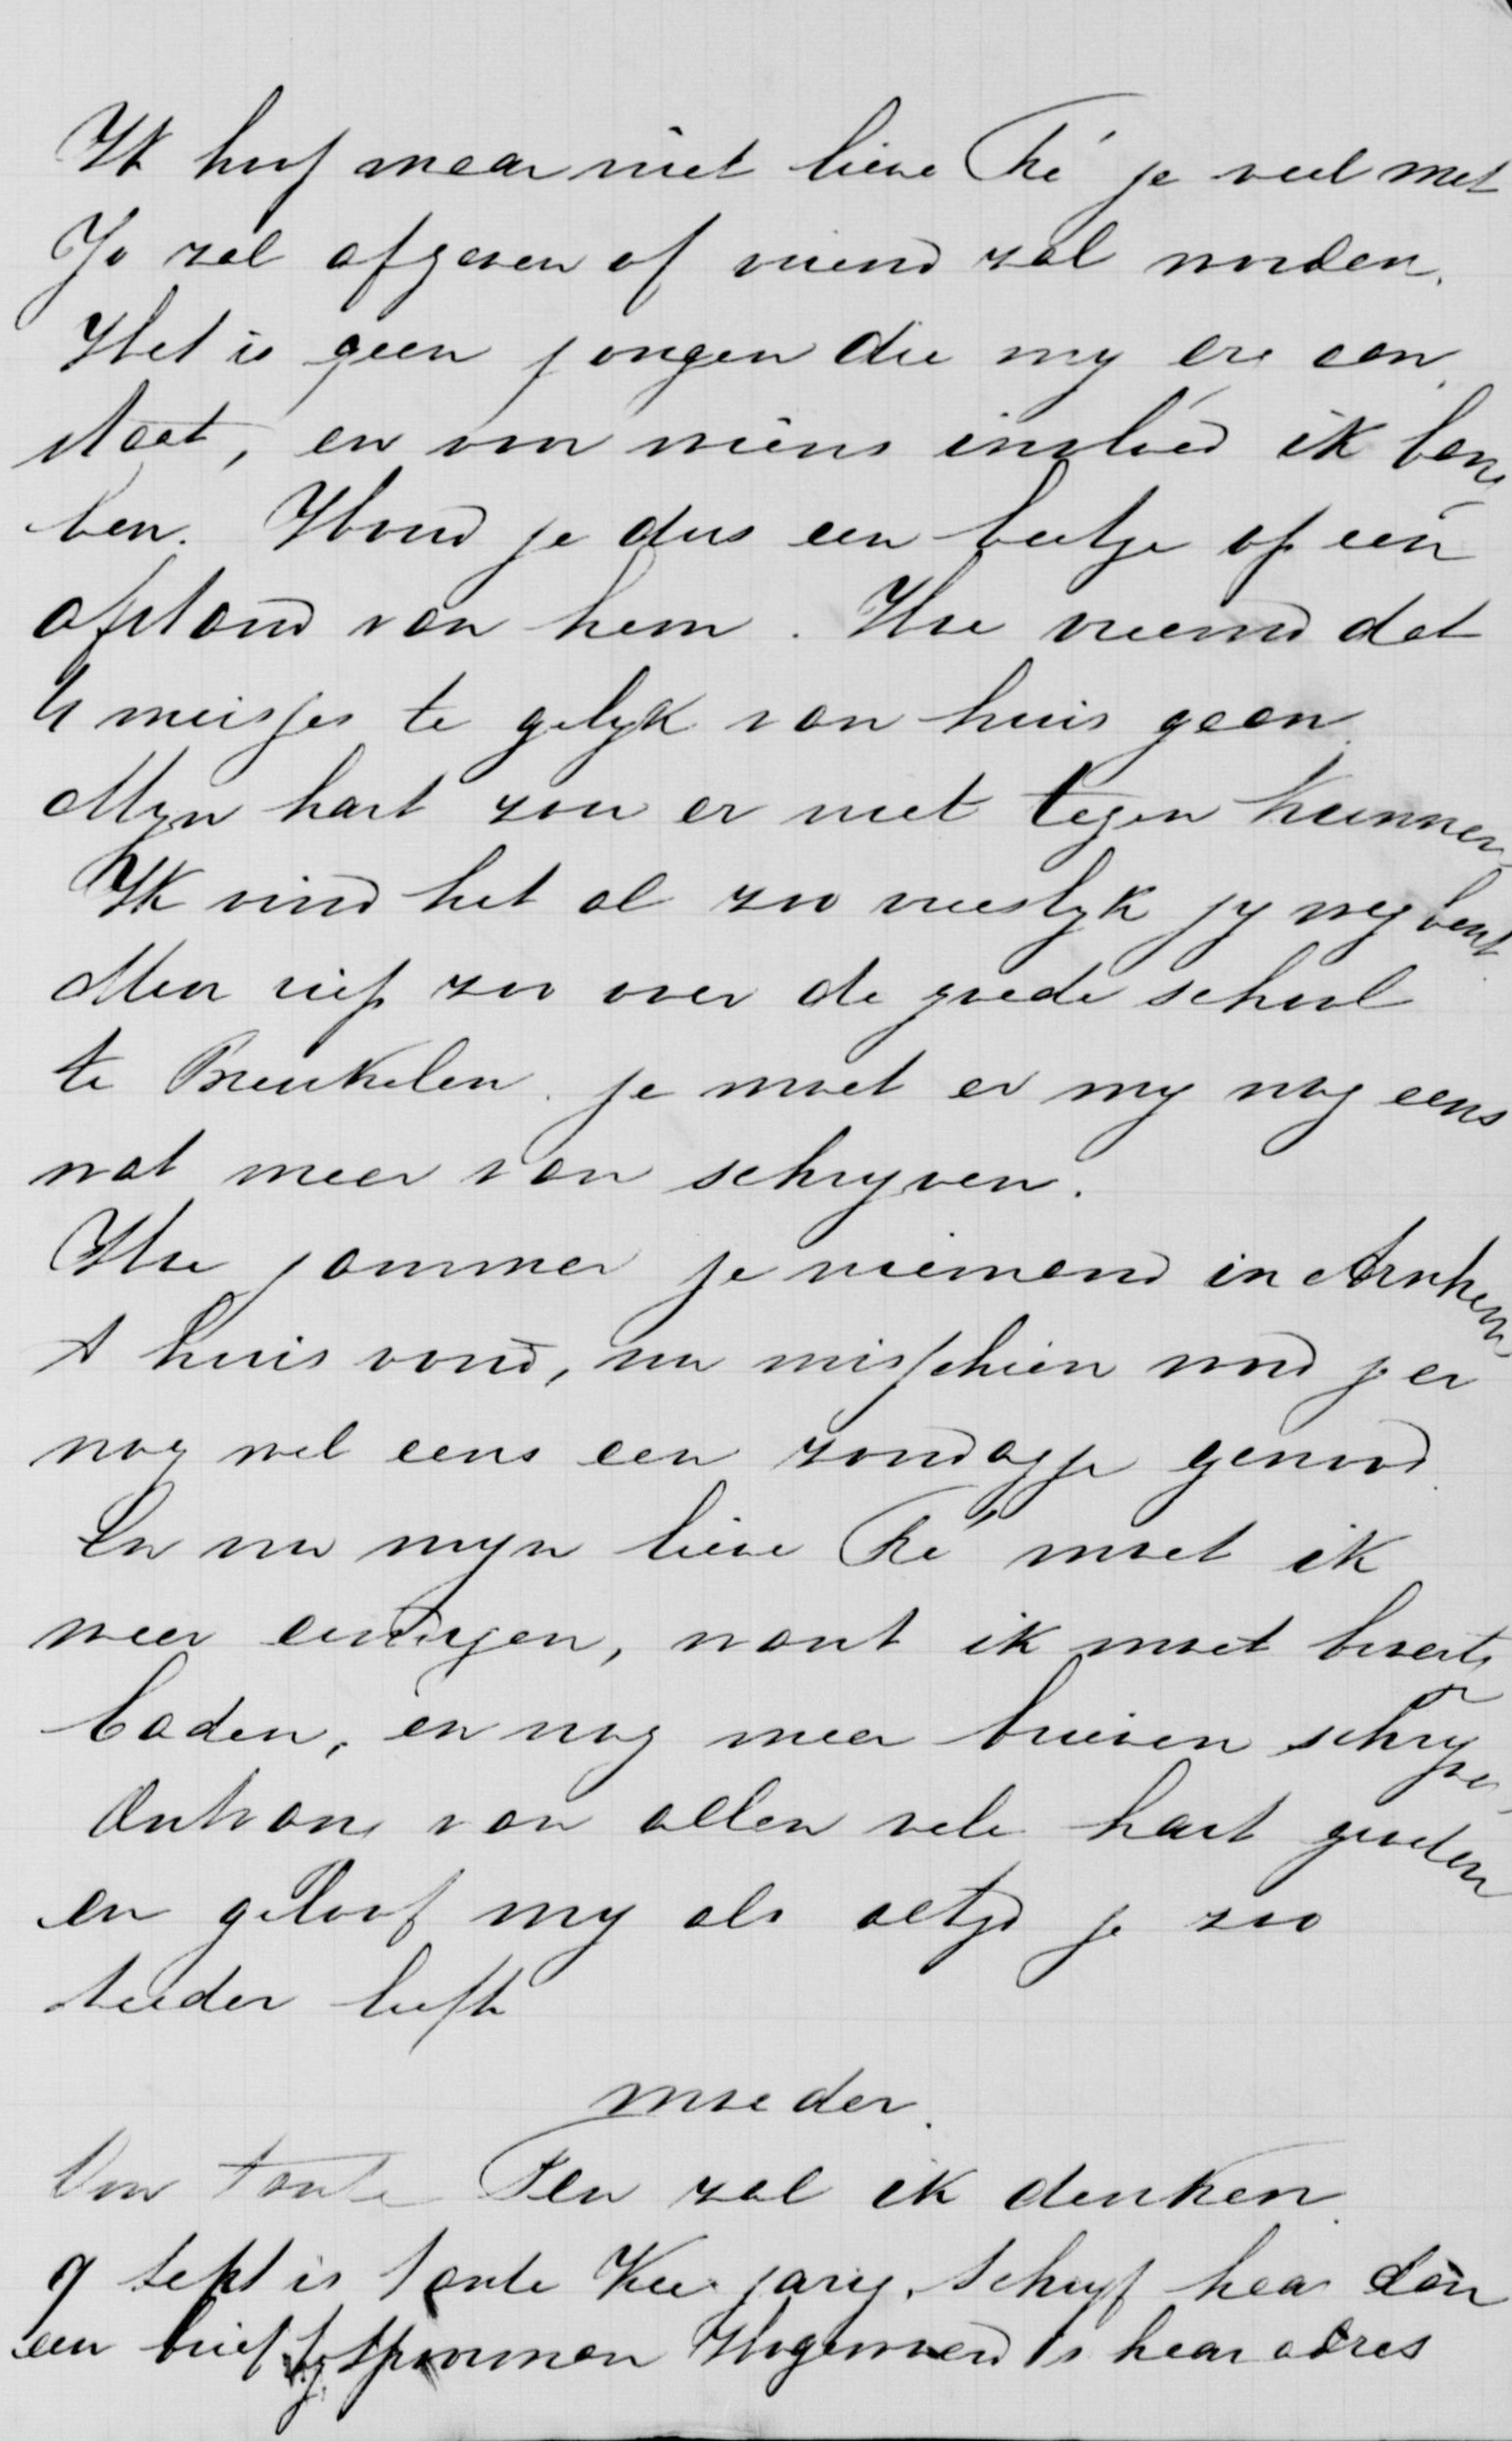 Ik hoop maar niet lieve Ré je veel met
Jo zal afgeven of vriend zal worden.
Het is geen jongen die my erg aan
staat, en voor wiens invloed ik bang
ben. Houd je dus een beetje op een
afstand van hem. Hoe vreemd dat
4 meisjes te gelyk van huis gaan.
Myn hart zou er niet tegen kunnen
Ik vind het al zoo vreeslyk jy weg bent.
Men riep zoo over de goede school
te Breukelen. je moet er my nog eens
wat meer van schryven.
Hoe jammer je niemand in Arnhem
t huis vond, nu misschien word je er
nog wel eens een zondagje genood.
En nu myn lieve Ré moet ik
weer eindigen, want ik moet
baden, en nog meer brieven schryven
Ontvang van allen vele hart groeten
en geloof my als altyd je zoo
teeder liefh
moeder.
Om tante Fen zal ik denken.
9 Sept is tante Kee jarig. Schryf haar dan
een brief Hoogewoerd is haar adres